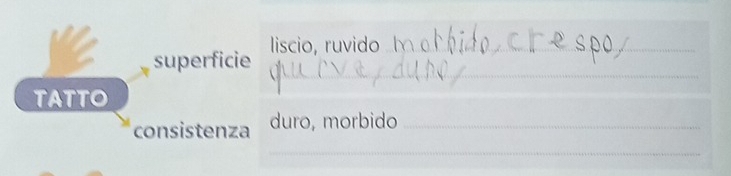 superficie
liscio, ruvido morbido, crespo,
duro,
TATTO
consistenza
duro, morbido